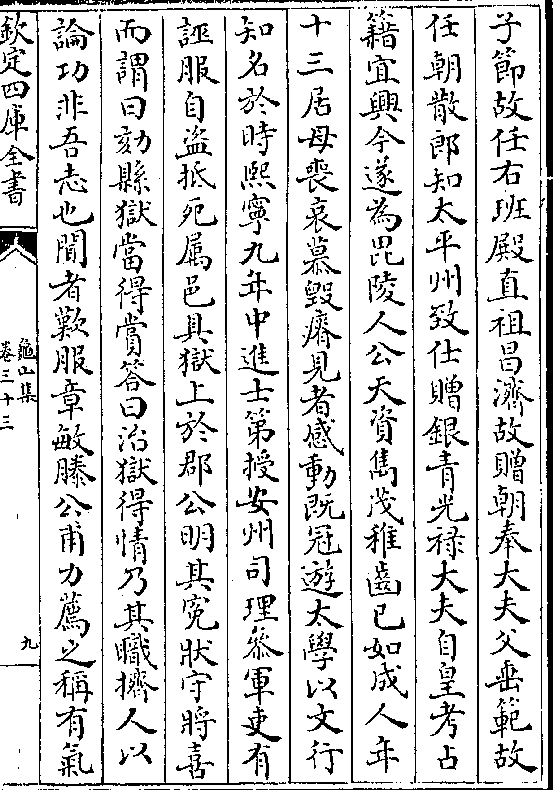 子節故任右班殿直祖昌濟故贈朝奉大夫父垂範故
任朝散郎知太平州致仕贈銀青光禄大夫自皇考占
籍宜興今遂為毘陵人公天資雋茂稚齒已如成人年
十三居母喪哀慕毀瘠見者感動既冠遊太學以文行
知名於時熙寧九年中進士第授安州司理叅軍吏有
誣服自盜抵死属邑具獄上於郡公明其寃狀守將喜
而謂曰劾縣獄當得賞答曰治獄得情乃其職擠人以
論功非吾志也聞者歎服章敏滕公甫力薦之稱有氣
欽定四庫全書
龜山集
卷三十三
九